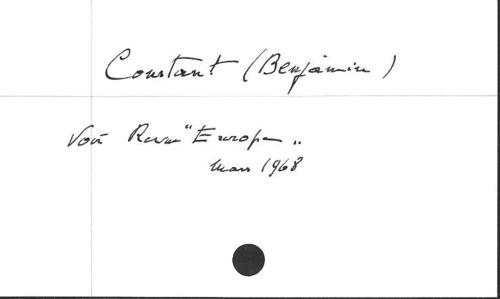 Constant (Benjamin)
Voir Revue "Europe"
mars 1968